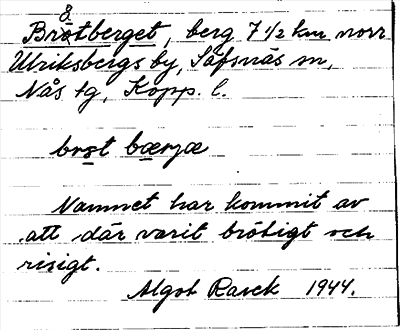 8
Brötberget, berg 7 1/2 km norr
Ulriksbergs by, Säfsnäs sn,
Nås tg, Kopp. l.
brøt bærjæ
Namnet har kommit av
att där varit brötigt och
risigt.
Algot Rasck 1944.